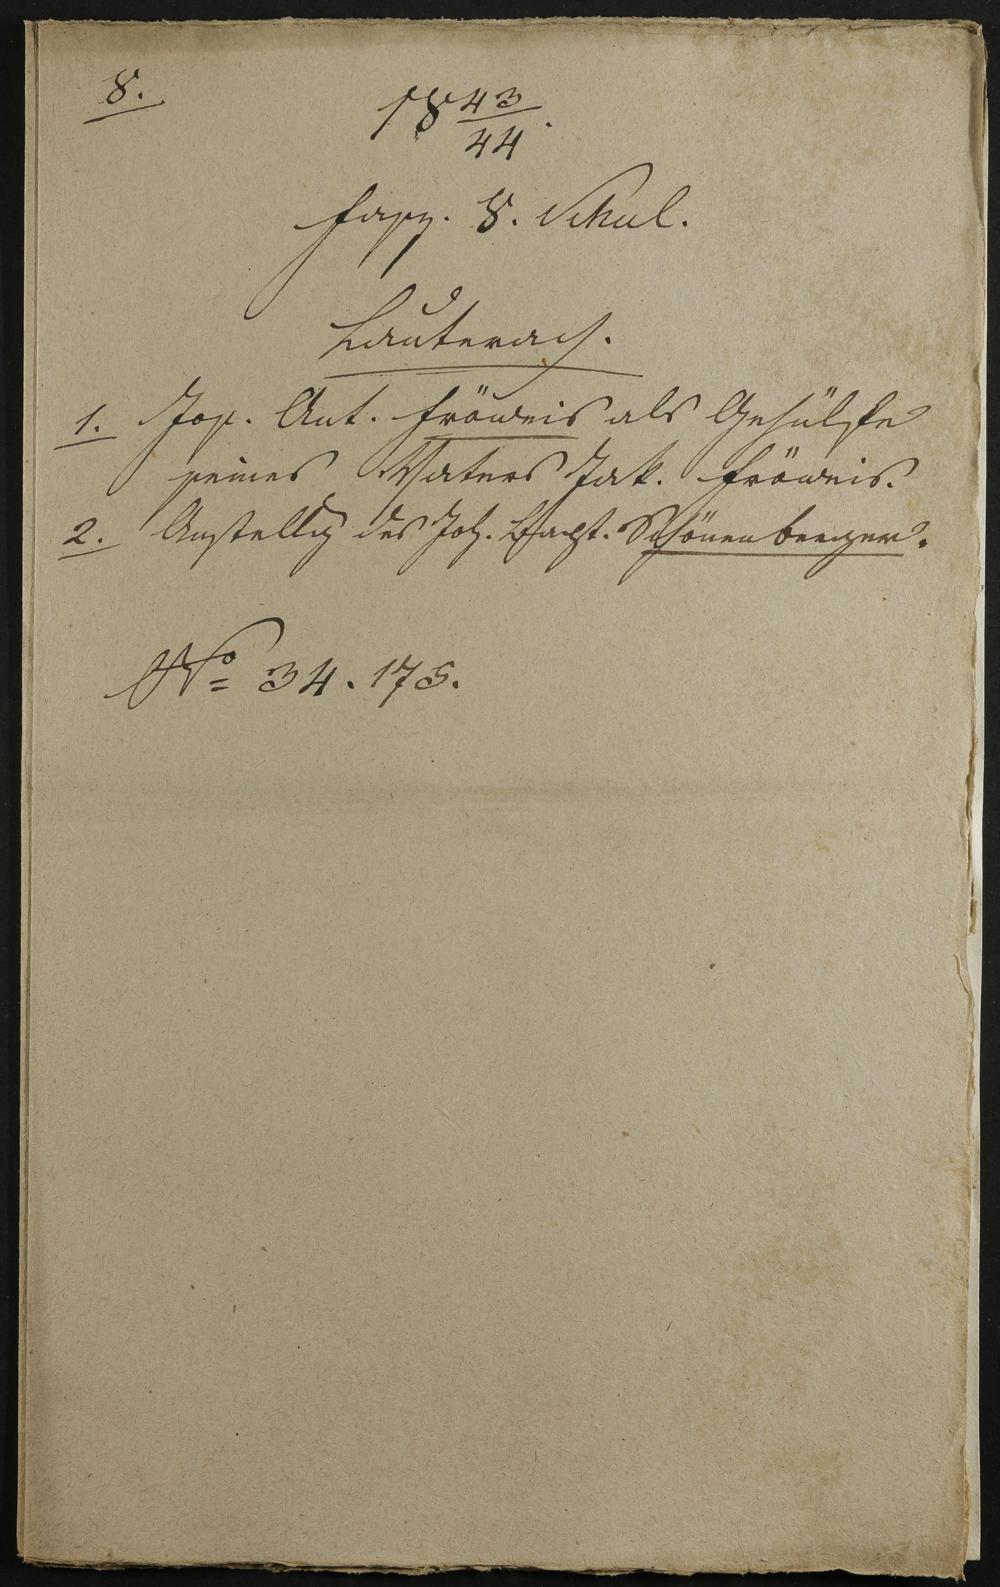 8.
18 43/44.
Fasz. 8. Schul.
Lauterach.
1. Jos. Ant. Fröweis als Gehülfe
seines Vaters Jak. Fröweis.
2. Anstellg des Joh. Bapt. Schönenberger.
No 34.175.